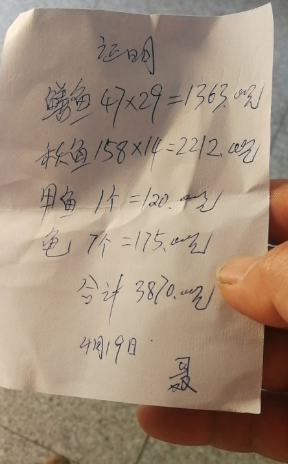 证明
鳝鱼 47×29=1363.00元
秋鱼 158×14=2212.00元
甲鱼 1个=120.00元
龟 7个=175.00元
合计 3870.00元
4月19日.
聂